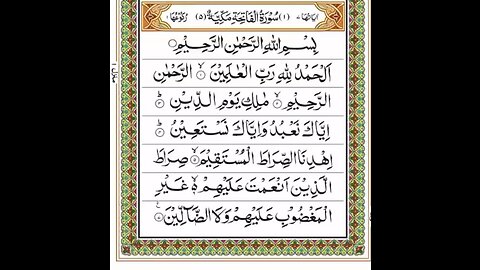 اٰیاتھا ۷ (۱) سُوْرَةُ الْفَاتِحَةِ مَكِّیَّةٌ (۵) رکوعھا ۱
بِسْمِ اللهِ الرَّحْمٰنِ الرَّحِیْمِ
اَلْحَمْدُ لِلّٰهِ رَبِّ الْعٰلَمِیْنَ ۙ الرَّحْمٰنِ
الرَّحِیْمِ ۙ مٰلِكِ یَوْمِ الدِّیْنِ ؕ
اِیَّاكَ نَعْبُدُ وَاِیَّاكَ نَسْتَعِیْنُ ؕ
اِهْدِنَا الصِّرَاطَ الْمُسْتَقِیْمَ ۙ صِرَاطَ
الَّذِیْنَ اَنْعَمْتَ عَلَیْهِمْ ۙ غَیْرِ
الْمَغْضُوْبِ عَلَیْهِمْ وَلَا الضَّآلِّیْنَ